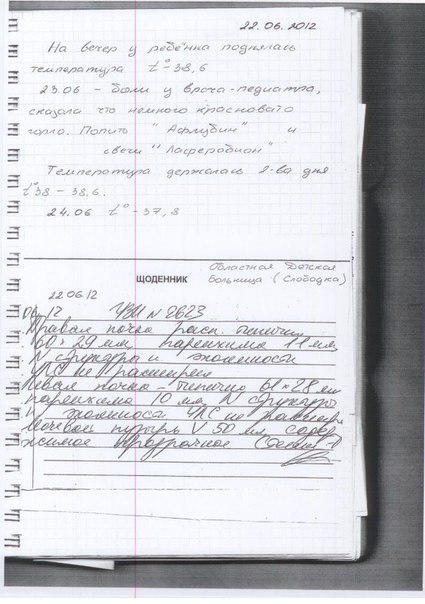 22.06.2012
На вечер у ребёнка поднялась
температура t°-38,6
23.06 – были у врача-педиатра,
сказала что немного красновато
горло. Попить "Афлубин" и
свечи "Лаферобион"
Температура держалась 2-ва дня
t°38 – 38,6.
24.06 t°-37,8
Областная Детская
ЩОДЕННИК Больница (Слободка)
22.06.12
УЗИ N 0623
Правая почка расп. типично
60×29 мм, паренхима 11 мм
N структура и эхогенность
ЧЛС не расширена
Левая почка – типично 61×28 мм
паренхима 10 мм. N структура
и эхогенность ЧЛС не расшир.
Мочевой пузырь V 50 мл, содер
жимое прозрачное